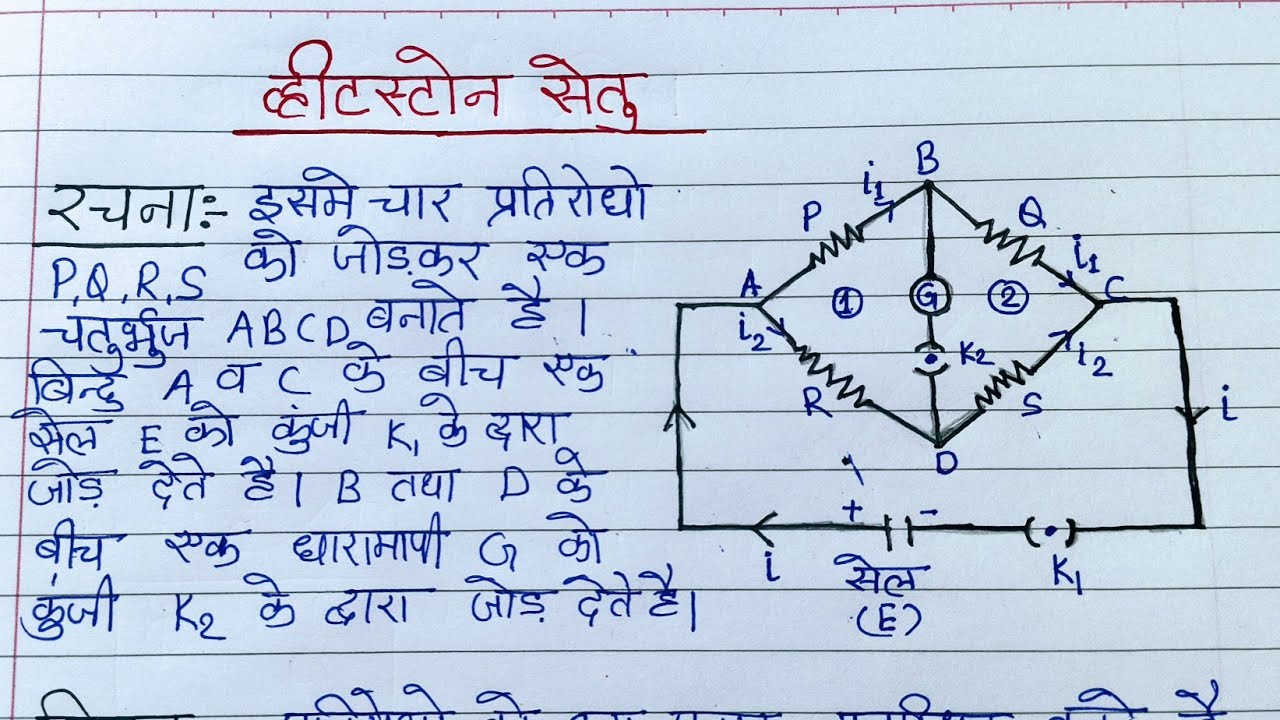 व्हीटस्टोन सेतु
रचना:- इसमे चार प्रतिरोधो
P,Q,R,S को जोड़कर एक
चतुर्भुज ABCD बनाते है।
बिन्दु A व C के बीच एक
सेल E को कुंजी K₁ के द्वारा
जोड़ देते है। B तथा D के
बीच एक धारामापी G को
कुंजी K₂ के द्वारा जोड़ देते है।
B
i₁
P
Q
i₁
A
1
G
2
C
i₂
K₂
i₂
R
S
D
i
+ -
i
सेल
(E)
K₁